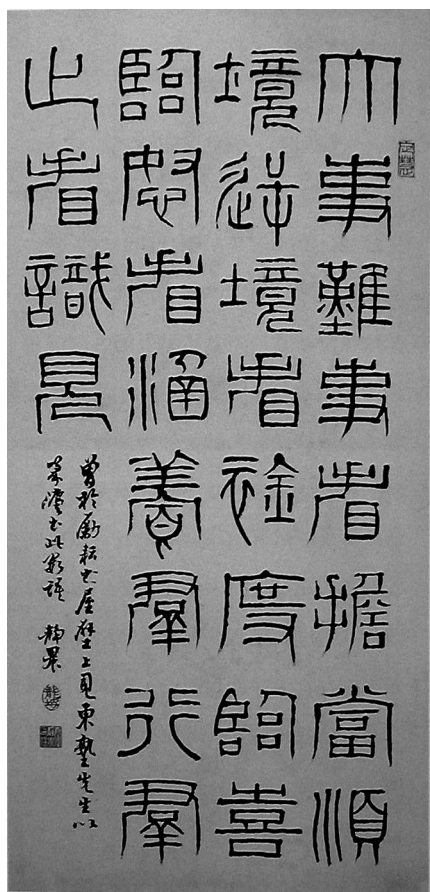 大事難事看擔當順
境逆境看襟度臨喜
臨怒看涵養羣行羣
止看識見
曾於勵耘書屋壁上見東塾先生以
篆灋書此數語 靜農